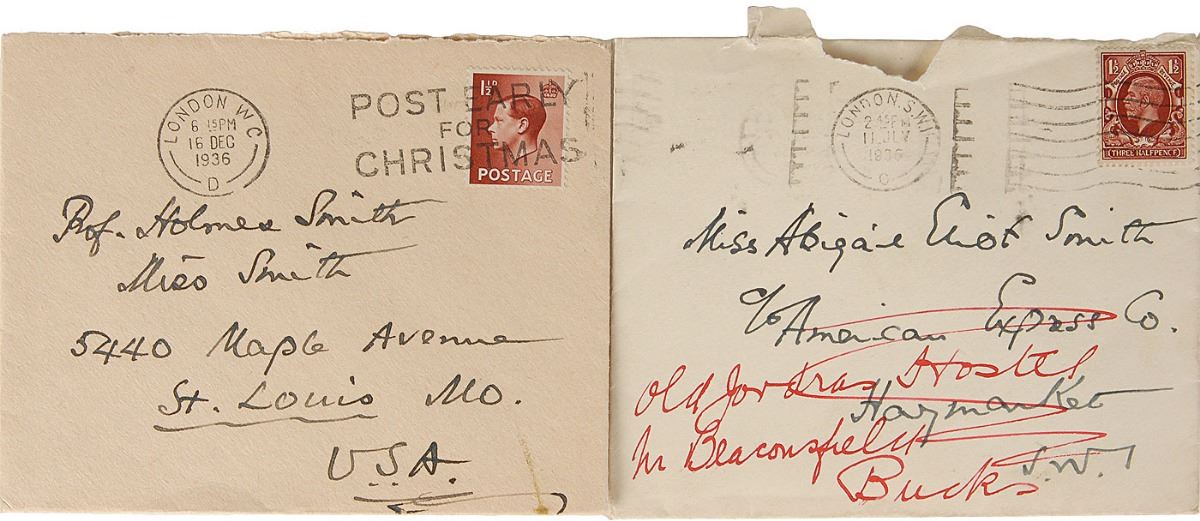 LONDON W.C.
6 15PM
16 DEC
1936
D
POST EARLY
FOR
CHRISTMAS
1½D
POSTAGE
Prof. Holmes Smith
Miss Smith
5440 Maple Avenue
St. Louis Mo.
U.S.A.
LONDON. S.W.1
2 45PM
11 JLY
1936
C
1½ 1½
(THREE HALFPENCE)
Miss Abigail Eliot Smith
c/o American Express Co.
Old Jordans Hostel
Haymarket
Nr Beaconsfield
S.W.1
Bucks